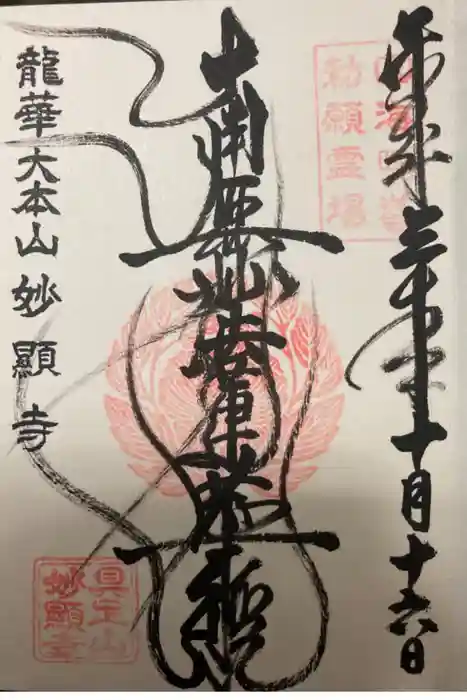 平成三十年十月十六日
四海唱導
勅願霊場
南無妙法蓮華経
龍華大本山妙顯寺
具足山
妙顯寺